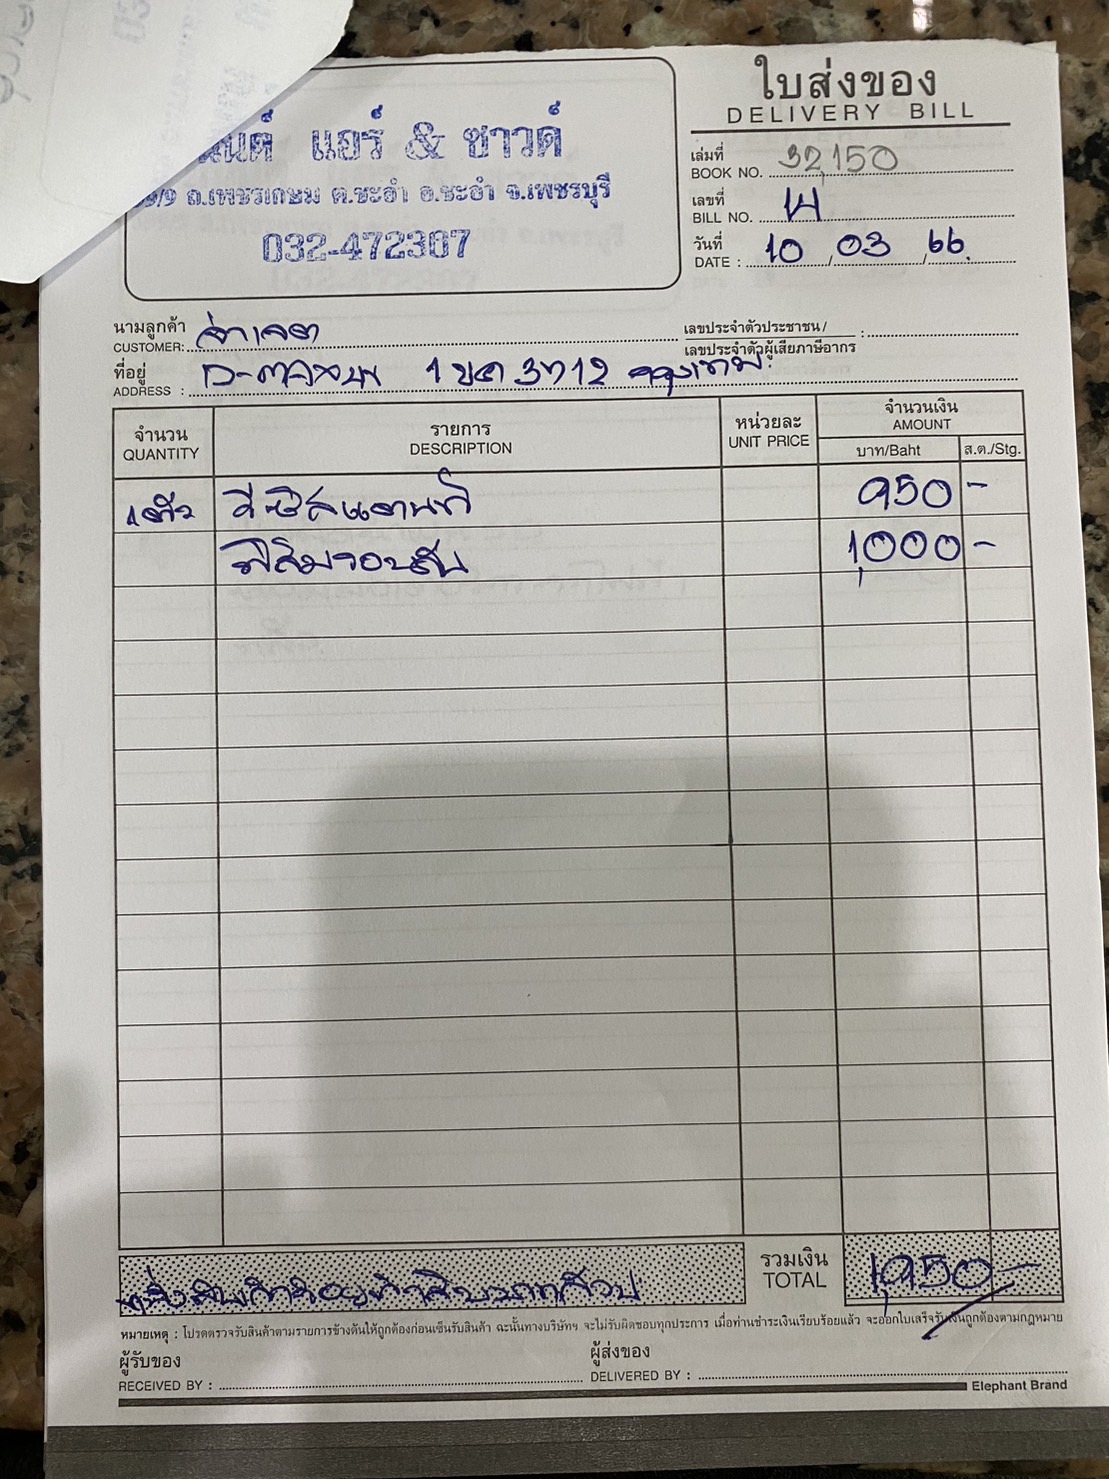 ใบส่งของ
DELIVERY BILL
แอร์ & ซาวด์
ถ.เพชรเกษม ต.ชะอำ อ.ชะอำ จ.เพชรบุรี
032-472307
เล่มที่
BOOK NO. 32,150
เลขที่
BILL NO. 14
วันที่
DATE : 10 / 03 / 66.
นามลูกค้า
CUSTOMER:
เลขประจำตัวประชาชน /
เลขประจำตัวผู้เสียภาษีอากร :
ที่อยู่
ADDRESS :
จำนวน
QUANTITY
รายการ
DESCRIPTION
หน่วยละ
UNIT PRICE
จำนวนเงิน
AMOUNT
บาท/Baht
ส.ต./Stg.
1 ตัว 950 -
ฟิล์มรอบคัน 1,000 -
หนึ่งพันเก้าร้อยห้าสิบบาทถ้วน
รวมเงิน
TOTAL
1,950 -
หมายเหตุ : โปรดตรวจรับสินค้าตามรายการข้างต้นให้ถูกต้องก่อนเซ็นรับสินค้า ฉะนั้นทางบริษัทฯ จะไม่รับผิดชอบทุกประการ เมื่อท่านชำระเงินเรียบร้อยแล้ว จะออกใบเสร็จรับเงินถูกต้องตามกฎหมาย
ผู้รับของ
RECEIVED BY :
ผู้ส่งของ
DELIVERED BY :
Elephant Brand